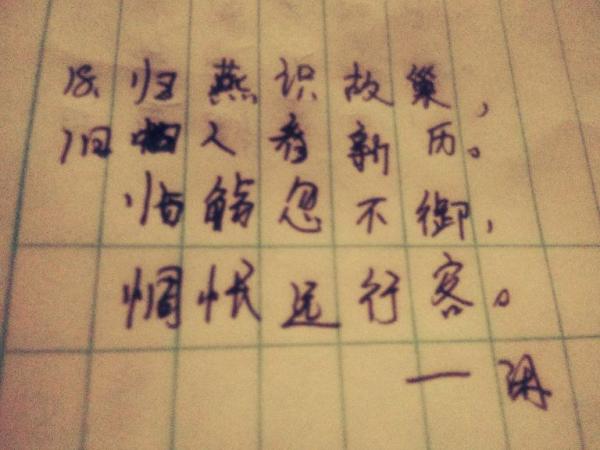 18. 归燕识故巢，
旧人看新历。
临觞忽不御，
惆怅远行客。
一